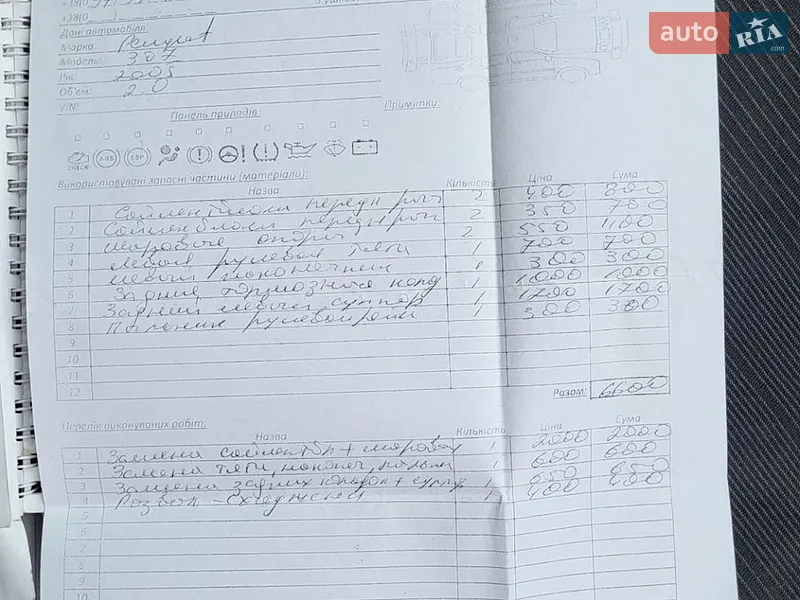 +38(0
+38(0
auto RIA .com
Дані автомобіля:
Марка:
Модель: 307
Рік: 2005
Об'єм: 2.0
VIN:
Панель приладів:
Примітки:
CHECK ABS ESP
Використовувані запасні частини (матеріали):
Назва Кількість Ціна Сума
1 Сайлентблоки передн 2 400 800
2 Сайлентблоки передн 2 350 700
3 шаровые опоры 2 550 1100
4 левая рулевая тяга 1 700 700
5 левый наконечник 1 300 300
6 Задние тормозные колод 1 1000 1000
7 Задний левый суппорт 1 1700 1700
8 рулевой рейки 1 300 300
9
10
11
12 Разом: 6600
Перелік виконуваних робіт:
Назва Кількість Ціна Сума
1 Замена + 1 2000 2000
2 Замена тяги, 1 600 600
3 Замена задних колодок + 1 650 650
4 Развал - 1 400 400
5
6
7
8
9
10